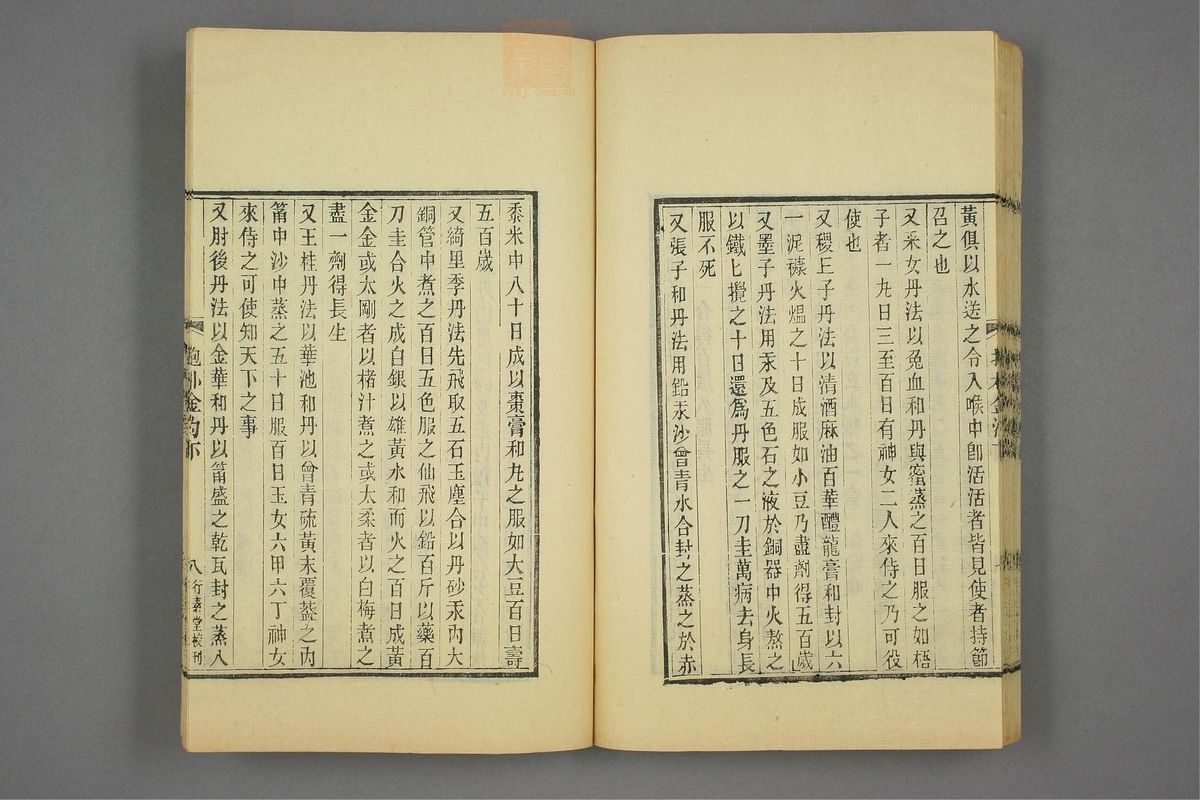 黃俱以水送之令入喉中卽活活者皆見使者持節
召之也
又采女丹法以兔血和丹與蜜蒸之百日服之如梧
子者一丸日三至百日有神女二人來侍之乃可役
使也
又稷丘子丹法以清酒麻油百華醴龍膏和封以六
一泥穅火熅之十日成服如小豆乃盡劑得五百歲
又墨子丹法用汞及五色石之液於銅器中火熬之
以鐵匕攪之十日還爲丹服之一刀圭萬病去身長
服不死
又張子和丹法用鉛汞沙曾青水合封之蒸之於赤
黍米中八十日成以棗膏和丸之服如大豆百日壽
五百歲
又綺里季丹法先飛取五石玉塵合以丹砂汞內大
銅管中煮之百日五色服之仙飛以鉛百斤以藥百
刀圭合火之成白銀以雄黃水和而火之百日成黃
金金或太剛者以楮汁煮之或太柔者以白梅煮之
盡一劑得長生
又王桂丹法以華池和丹以曾青硫黃末覆薟之內
筩中沙中蒸之五十日服百日玉女六甲六丁神女
來侍之可使知天下之事
又肘後丹法以金華和丹以筩盛之乾瓦封之蒸八
八
行素堂校刊